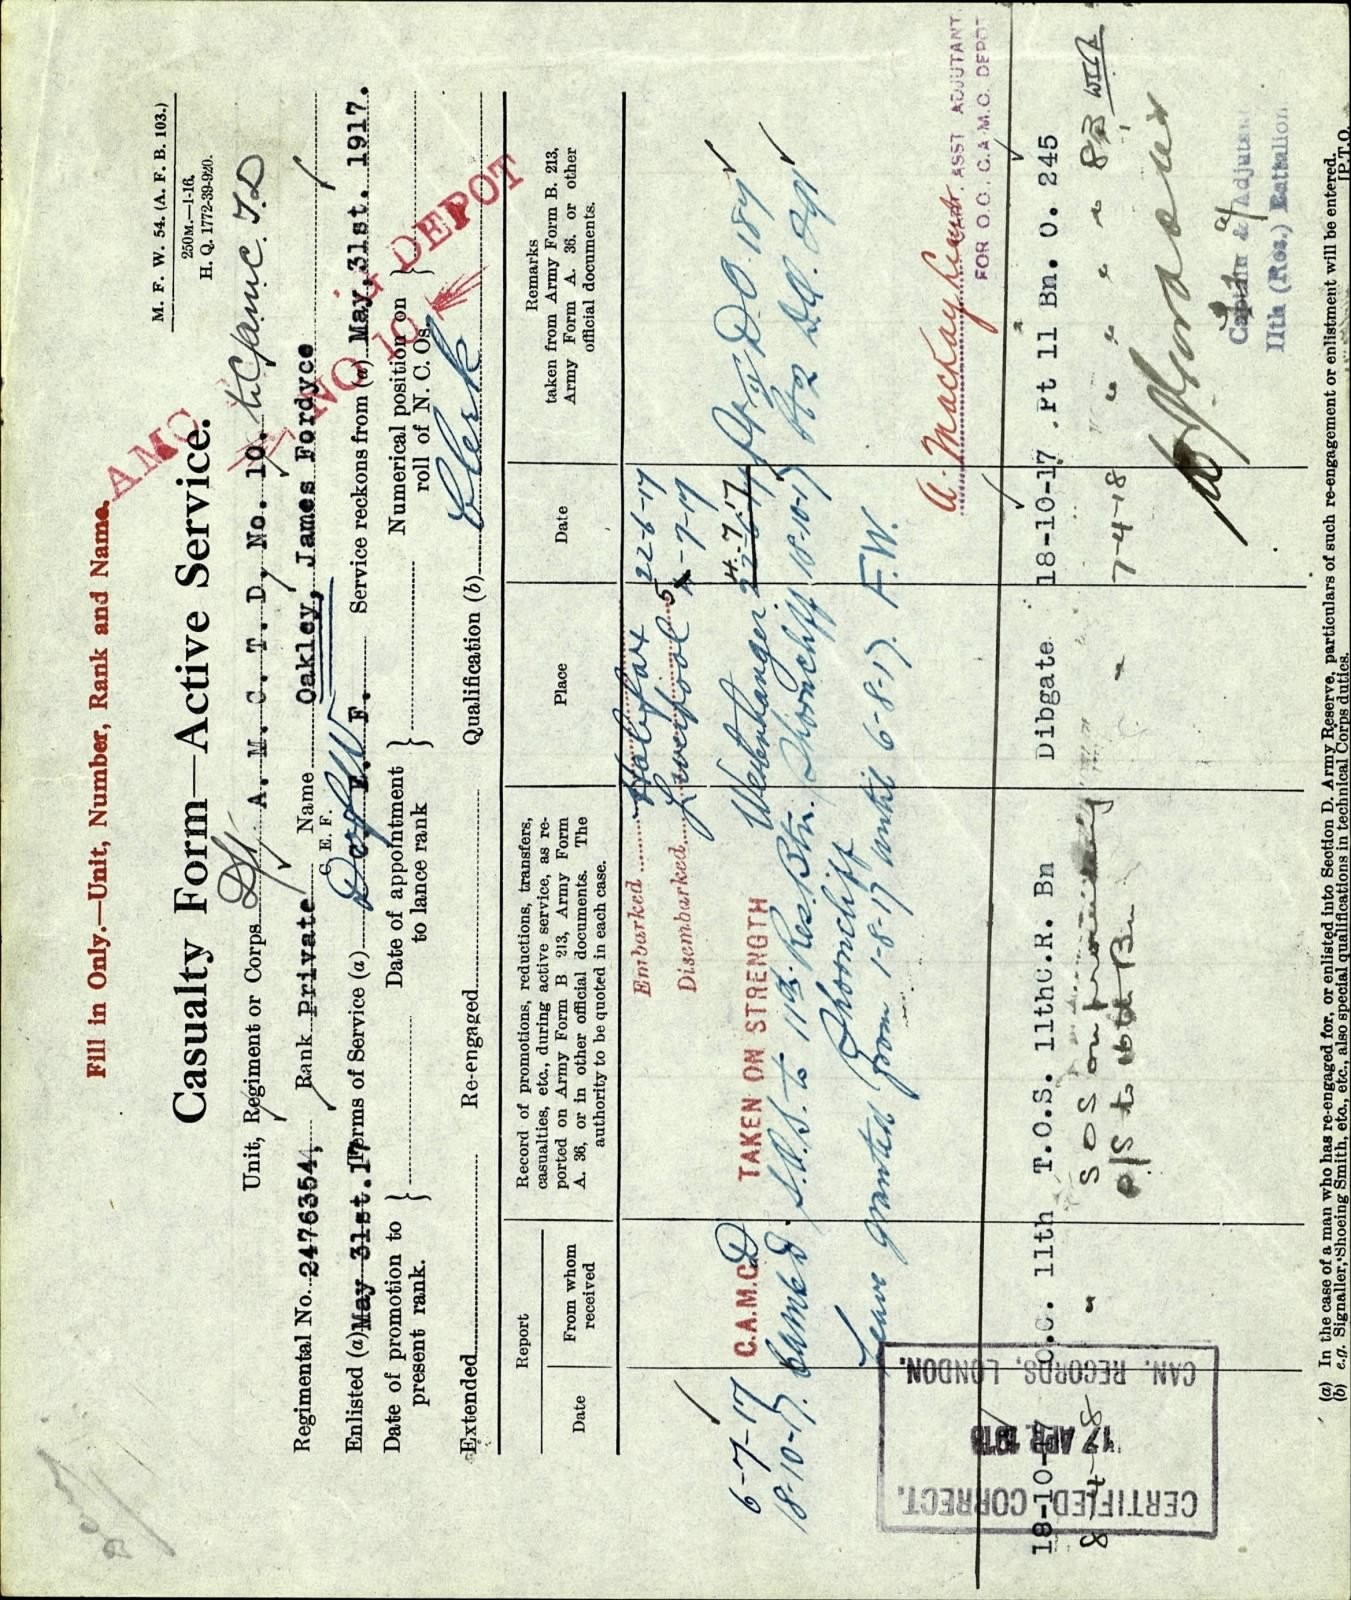 Fill in Only.—Unit, Number, Rank and Name.
M. F. W. 54. (A. F. B. 103.)
250M.—1-16.
H. Q. 1772-39-920.
AMC
NO 10
DEPOT
Casualty Form—Active Service.
Unit, Regiment or Corps A. M. C. T. D, No. 10.
Regimental No. 2476354, Rank Private Name Oakley, James Fordyce
C. E. F.
Enlisted (a) May 31st. 17 Terms of Service (a) D of W E. F. Service reckons from (a) May, 31st. 1917.
Date of promotion to present rank. } Date of appointment to lance rank } Numerical position on roll of N. C. Os. }
Extended Re-engaged Qualification (b) Clerk
Report
Date
From whom received
Record of promotions, reductions, transfers, casualties, etc., during active service, as reported on Army Form B 213, Army Form A. 36, or in other official documents. The authority to be quoted in each case.
Place
Date
Remarks
taken from Army Form B. 213, Army Form A. 36. or other official documents.
Embarked Halifax 22-6-17
Disembarked Liverpool 5-7-17
6-7-17 C.A.M.C.D TAKEN ON STRENGTH Westenhanger 4.7.17 D.O. 187
18-10-17. S.O.S. to 11th Res. Btn. Shorncliff 18-10-17 Pt 2 D.O.
Leave granted from 1-8-17 until 6-8-17. F.W.
Shorncliff
A. Mackay Lieut. ASST ADJUTANT.
FOR O.C., C.A.M.C. DEPOT
18-10-17 O.C. 11th T.O.S. 11thC.R. Bn Dibgate 18-10-17 .Pt 11 Bn. O. 245
8-4-18 " SOS on proceeding " 7-4-18 " " " " 83
O/S to 16th Bn
Captain & Adjutant
11th (Res.) Battalion
CERTIFIED CORRECT.
17 APR 1918
CAN. RECORDS, LONDON.
(a) In the case of a man who has re-engaged for, or enlisted into Section D. Army Reserve, particulars of such re-engagement or enlistment will be entered.
(b) e.g. Signaller, Shoeing Smith, etc., etc., also special qualifications in technical Corps duties.
[P.T.O.